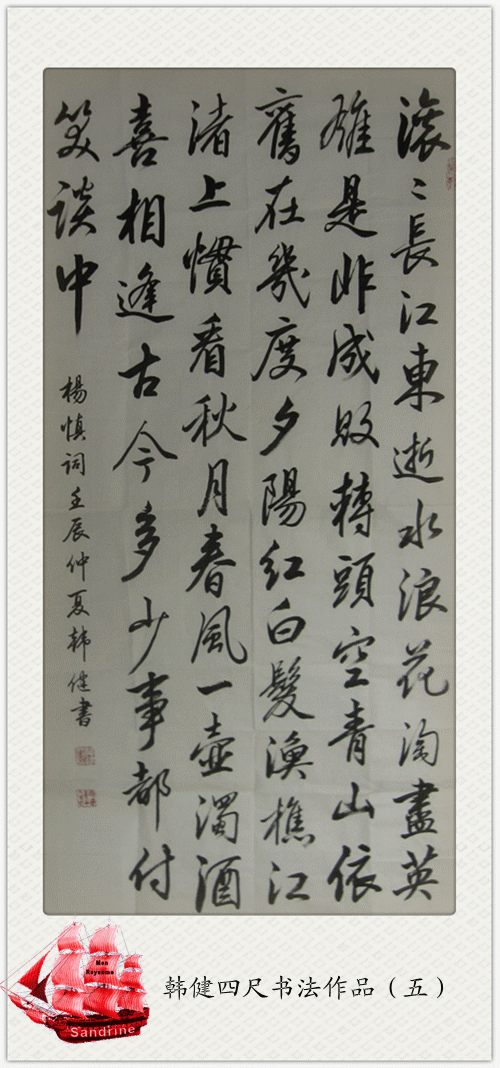 滚〻長江東逝水浪花淘盡英
雄是非成敗轉頭空青山依
舊在幾度夕陽紅白髮漁樵江
渚上慣看秋月春風一壺濁酒
喜相逢古今多少事都付
笑談中
楊慎词壬辰仲夏韩健書
Mon
Royaume
Sandrine
韩健四尺书法作品（五）